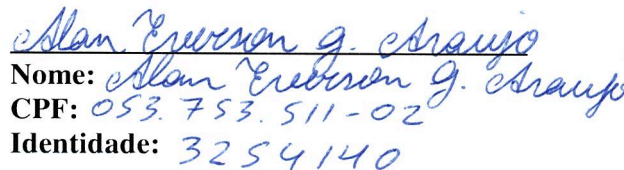 Alan Everson G. Araujo
Nome: Alan Everson G. Araujo
CPF: 053.753.511-02
Identidade: 3254140